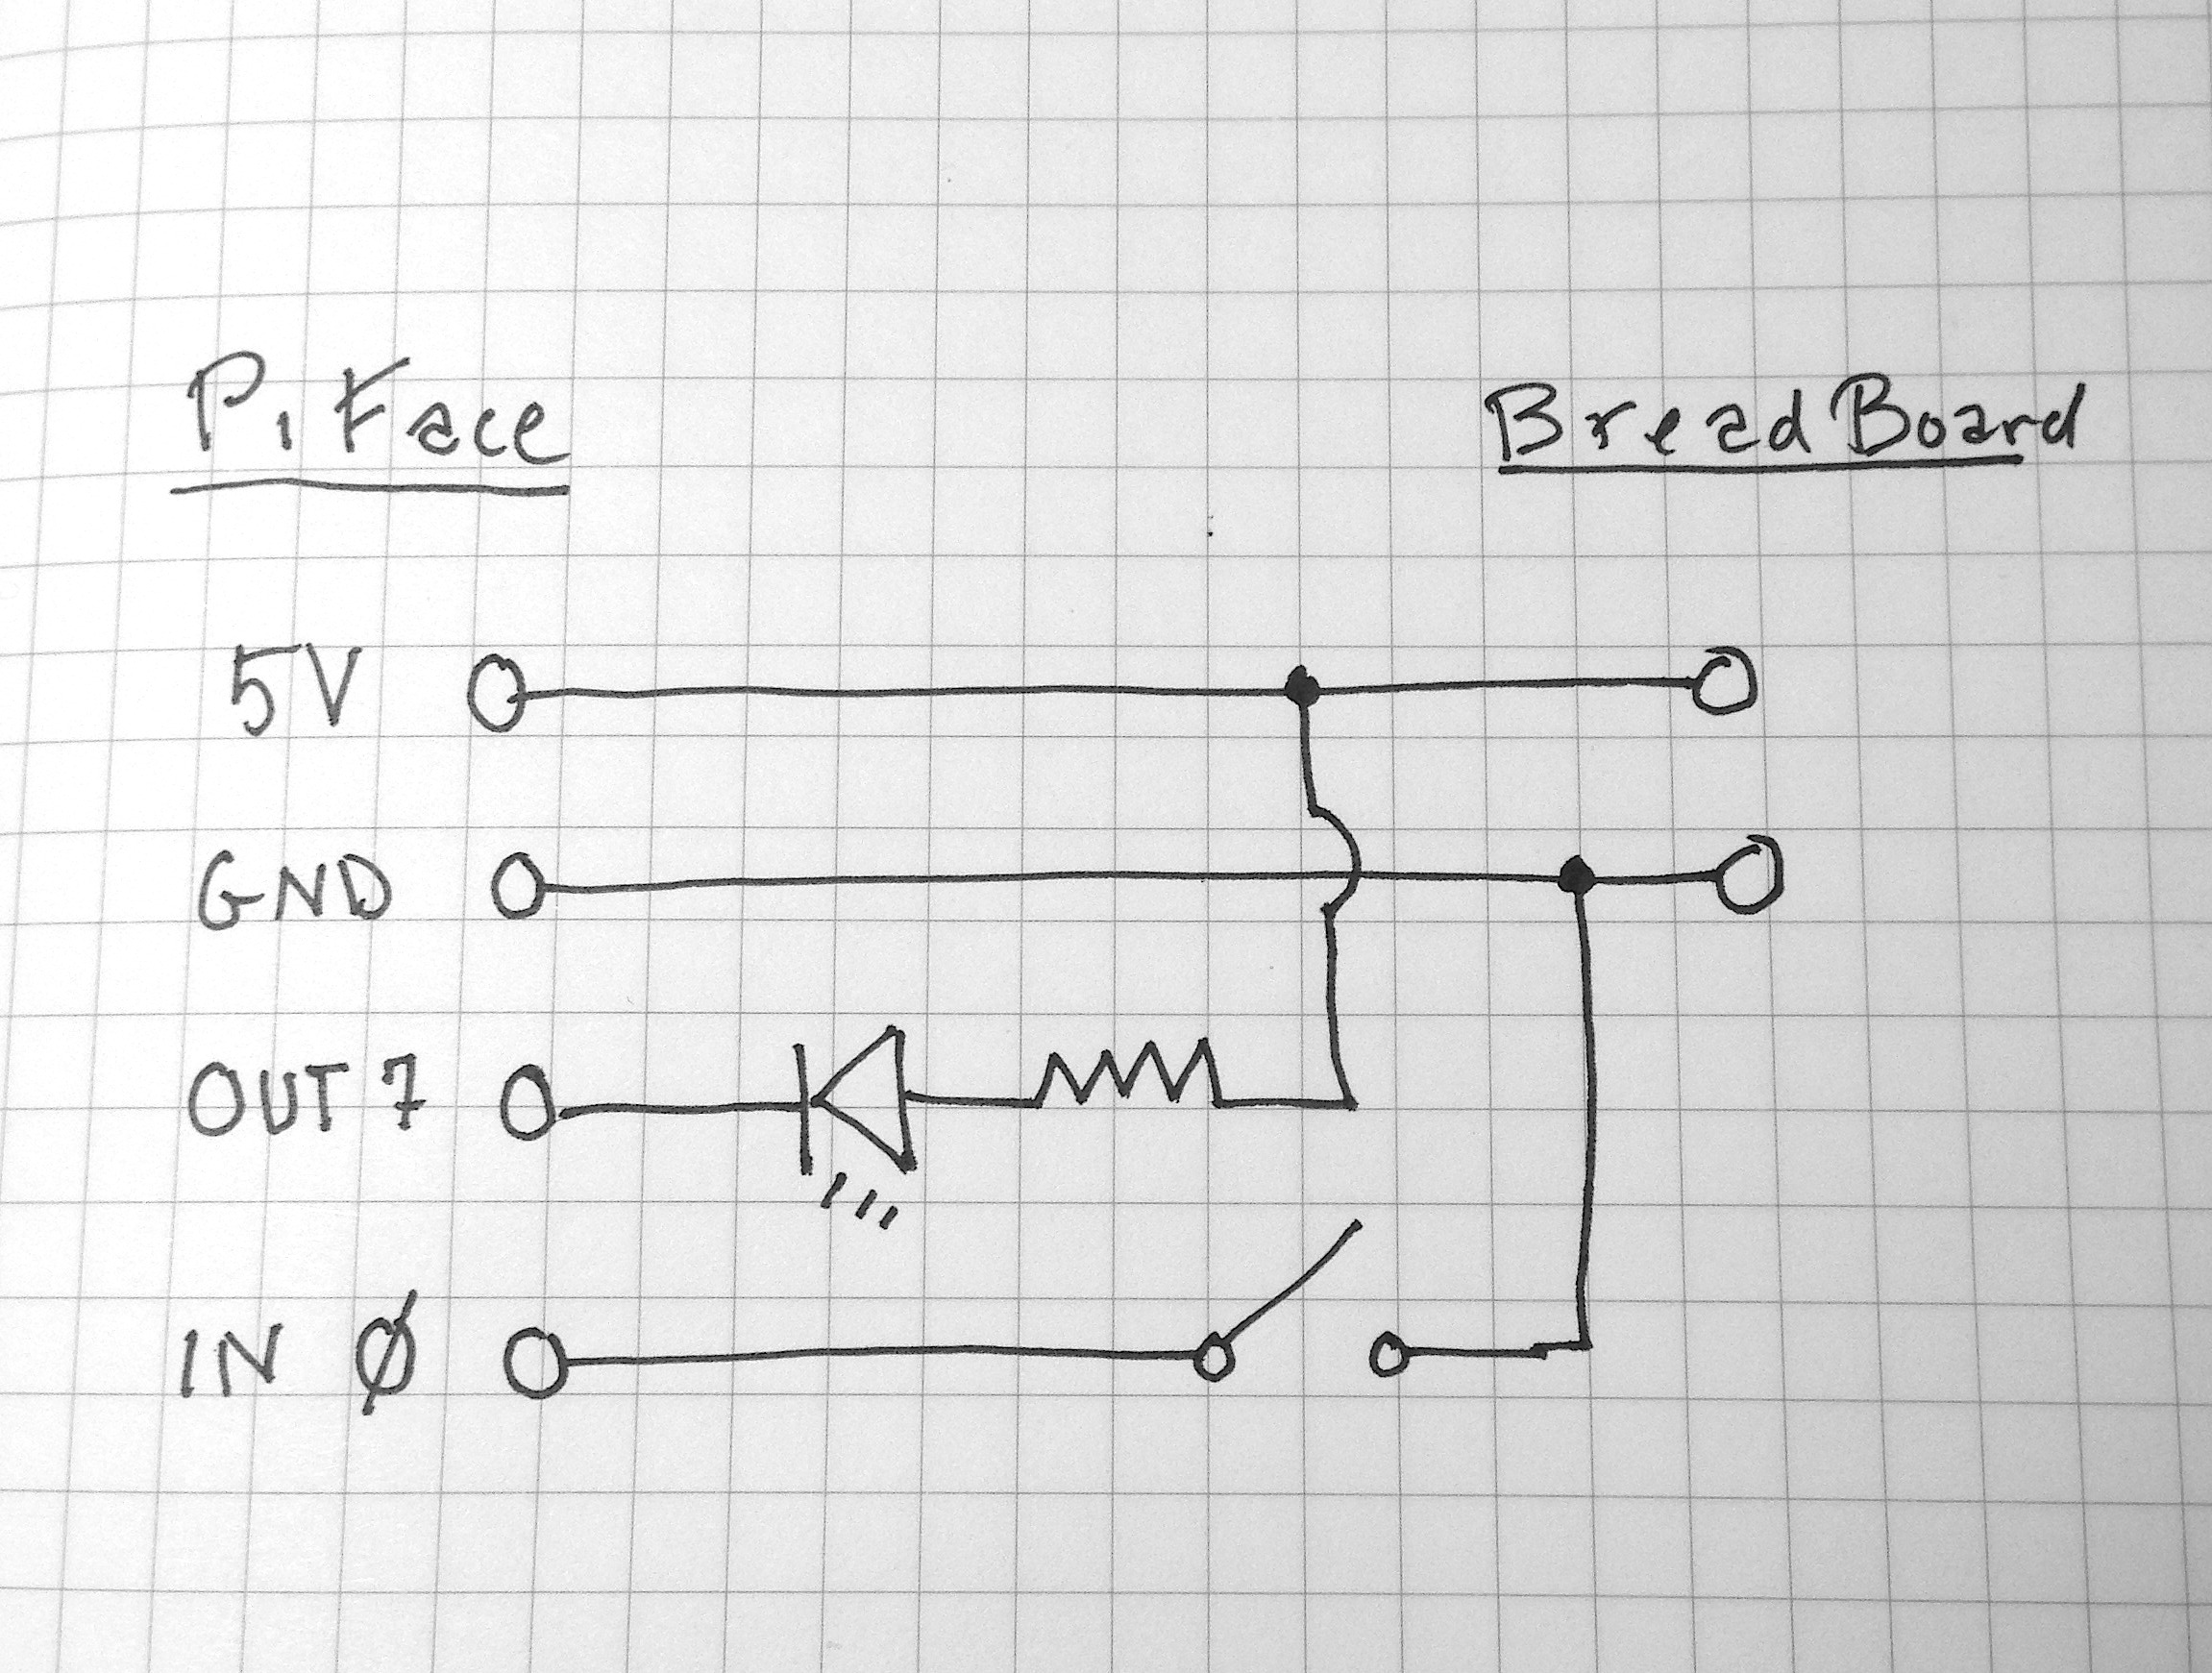 PiFace
BreadBoard
5V
GND
OUT 7
IN Ø